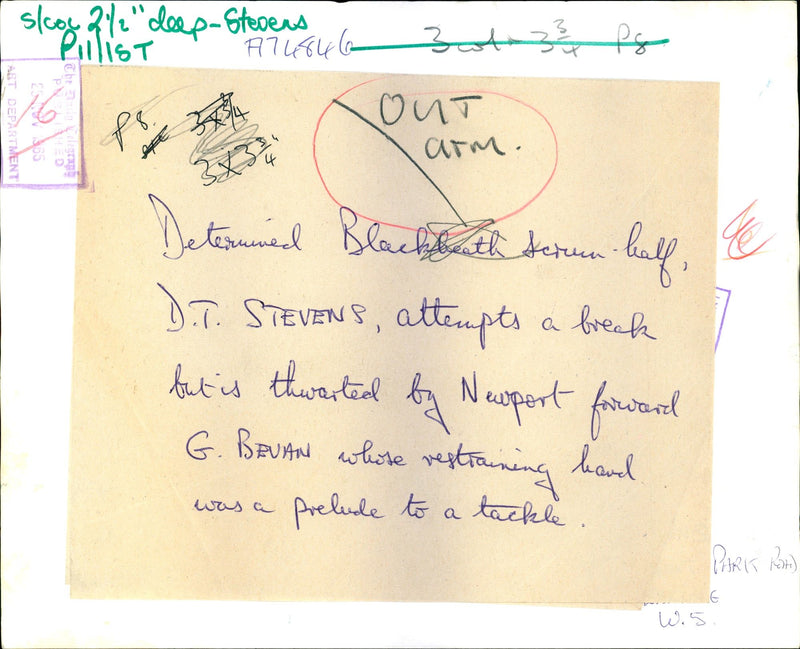 s/col 2½" deep - Stevens
P11/1ST
A74846
3 col - 3¾ P8
The Daily Telegraph
ART DEPARTMENT
16
P8.
3 x 3¾
3 x 3¾"
OUT
arm.
Determined Blackheath scrum-half,
D.T. STEVENS, attempts a break
but is thwarted by Newport forward
G. BEVAN whose restraining hand
was a prelude to a tackle.
PARK ROAD
W.5.